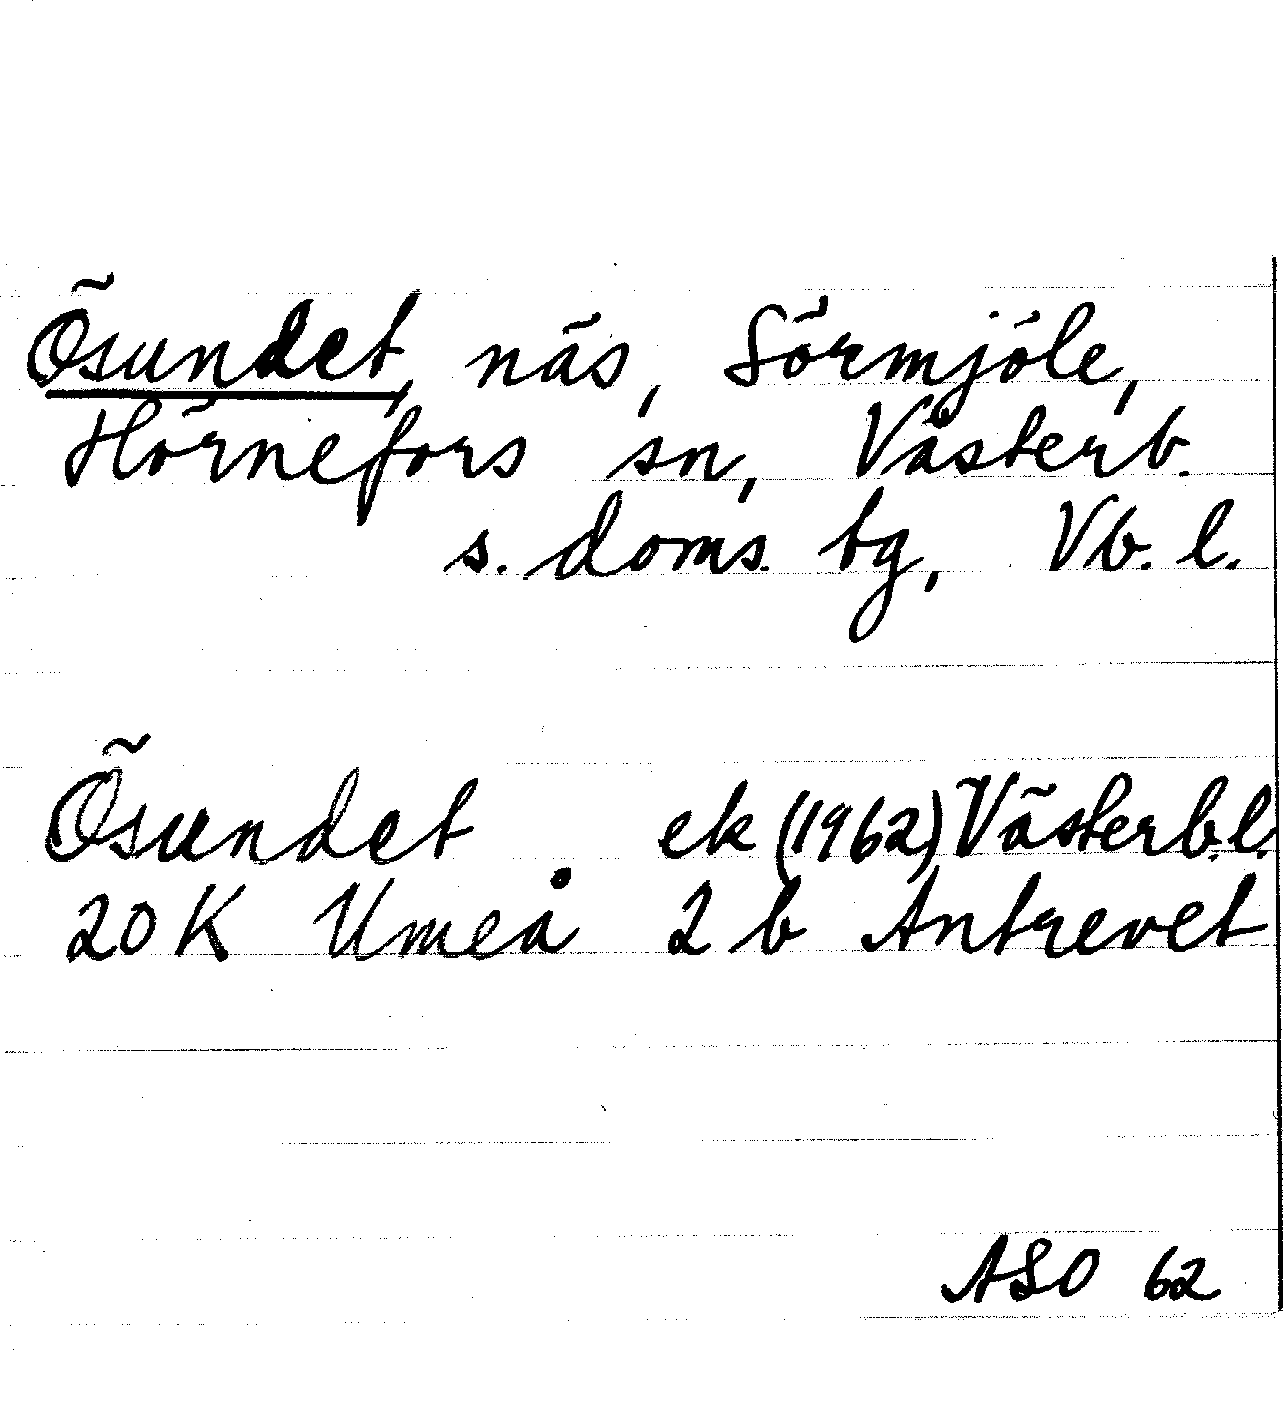 Ösundet, näs, Sörmjöle,
Hörnefors sn, Västerb.
s. doms. bg, Vb. l.
Ösundet ek (1962) Västerb. l.
20 K Umeå 2 b Antrevet
ASO 62